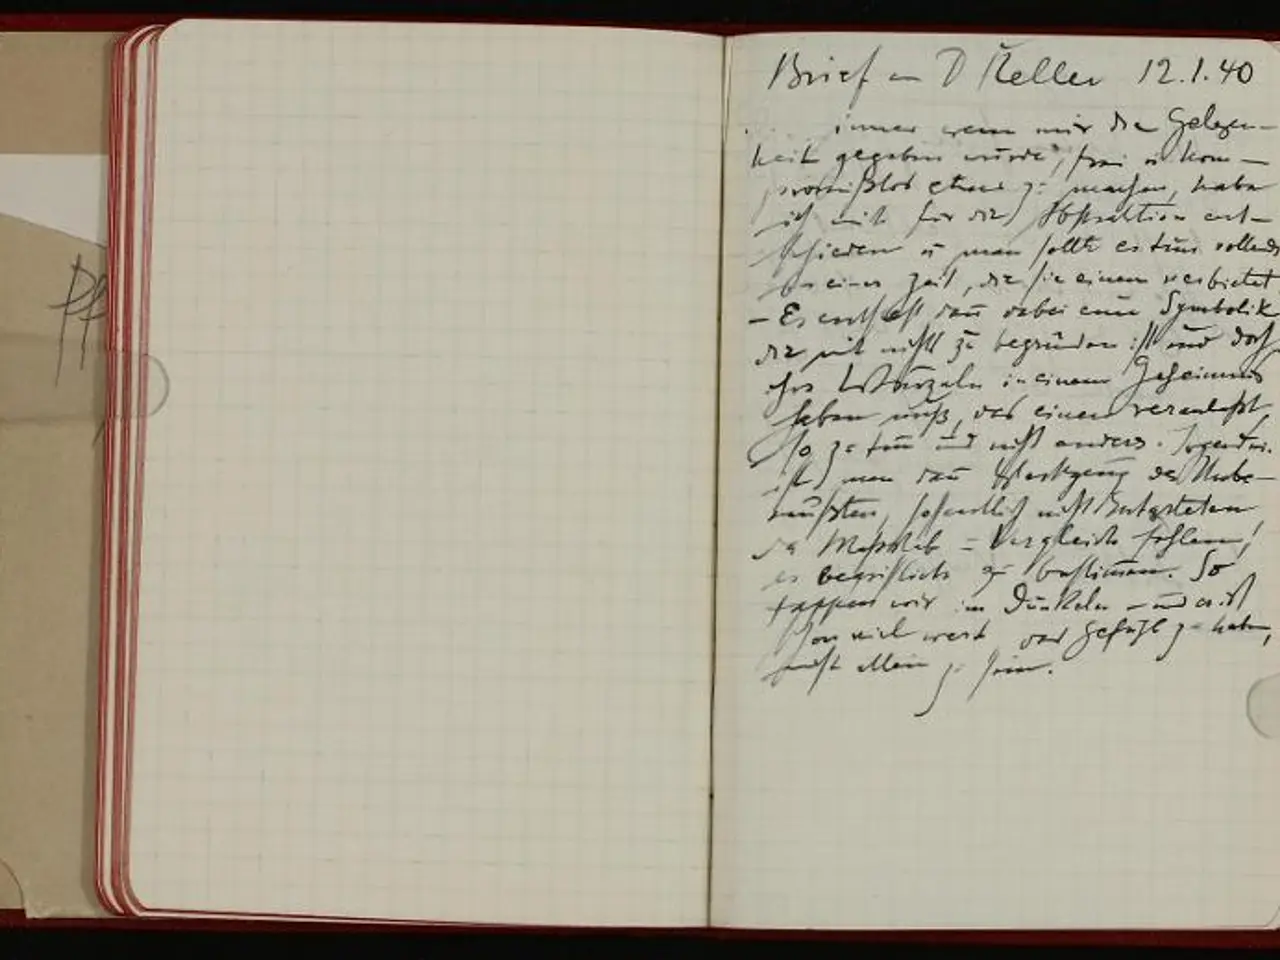 Brief an D Keller 12.1.40
. . . immer wenn mir die Gelegen-
heit gegeben wurde, frei u kom-
promißlos etwas zu machen, habe
ich mich für die Abstraktion ent-
schieden u man sollte es tun vollends
in einer Zeit, die sie einem verbietet
– Es entsteht dann dabei eine Symbolik
die mit nichts zu begründen ist und doch
ihre Wurzeln in einem Geheimnis
haben muß, das einen veranlaßt,
so zu tun und nicht anders. Irgendwie
ist man dann Werkzeug des Unbe-
wußten, hoffentlich nicht Entarteten
da Maßstab = Vergleich fehlen,
es begrifflich zu bestimmen. So
tappen wir im Dunkeln – und es ist
schon viel wert das Gefühl zu haben,
nicht allein zu sein.